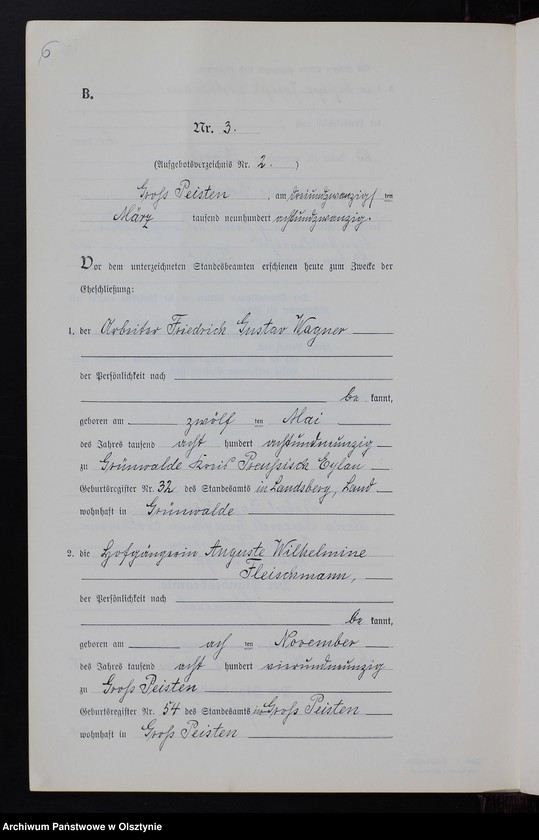 6
B.
Nr. 3.
(Aufgebotsverzeichnis Nr. 2. )
Groß Peisten , am dreiundzwanzigsten ten
März tausend neunhundert achtundzwanzig.
Vor dem unterzeichneten Standesbeamten erschienen heute zum Zwecke der
Eheschließung:
1. der Arbeiter Friedrich Gustav Wagner
der Persönlichkeit nach
be kannt,
geboren am zwölf ten Mai
des Jahres tausend acht hundert achtundneunzig
zu Grünwalde Kreis Preußisch Eylau
Geburtsregister Nr. 32 des Standesamts in Landsberg, Land
wohnhaft in Grünwalde
2. die Hofgängerin Auguste Wilhelmine
Fleischmann,
der Persönlichkeit nach
be kannt,
geboren am ach ten November
des Jahres tausend acht hundert vierundneunzig
zu Groß Peisten
Geburtsregister Nr. 54 des Standesamts in Groß Peisten
wohnhaft in Groß Peisten
Archiwum Państwowe w Olsztynie